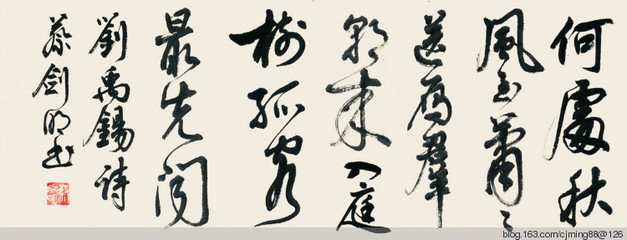 何處秋
風至蕭々
送雁群
朝來入庭
樹孤客
最先聞
劉禹錫詩
蔡劍明书
blog.163.com/cjming88@126